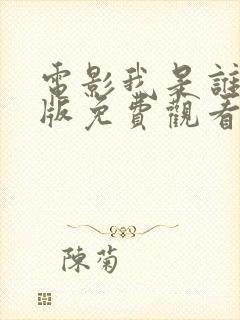 電影我是誰
版免費觀看
陳菊